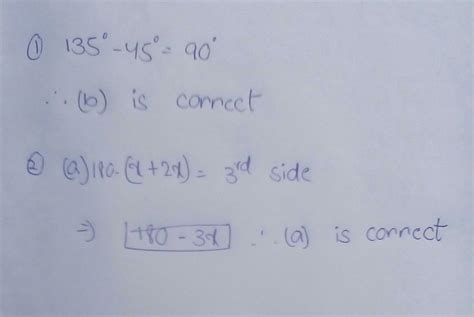 ① 135° - 45° = 90°
∴ (b) is correct
② (a) 180 - (x + 2x) = 3rd side
⇒ 180 - 3x ∴ (a) is correct